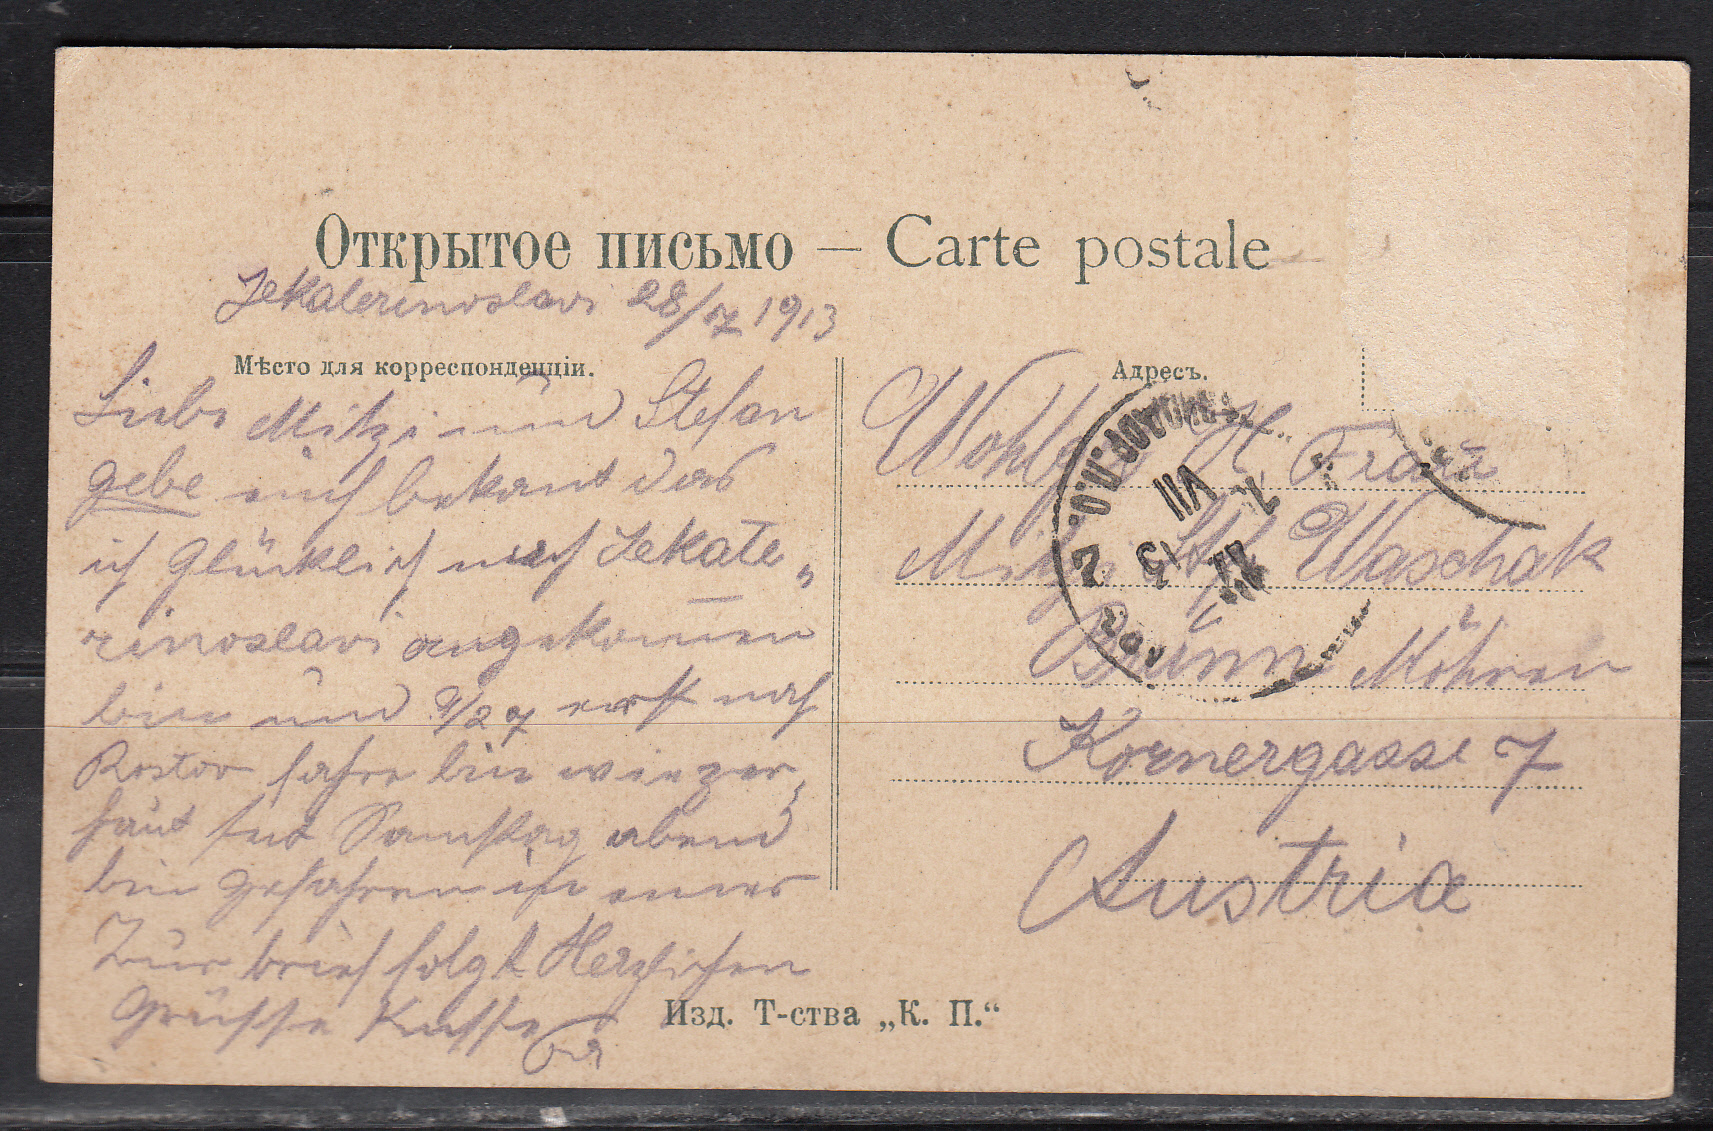 Открытое письмо — Carte postale
Jekaterinoslavi 28/ 1913
Мѣсто для корреспонденціи.
Liebe Mitzi und Stefan
gebe euch bekant das
ich Glücklich nach Jekate„
rinoslavi angekomen
bin und erst nach
Rostov fahre bin
Samstag abend
bin gefahren
brief folgt Herzlichen
Grüsse Kusse
Адресъ.
Wohlg. H Frau
Mitzi Waschak
Brünn Mähren
Kornergasse 7
Austria
VII
13
2
Изд. Т-ства „К. П.“